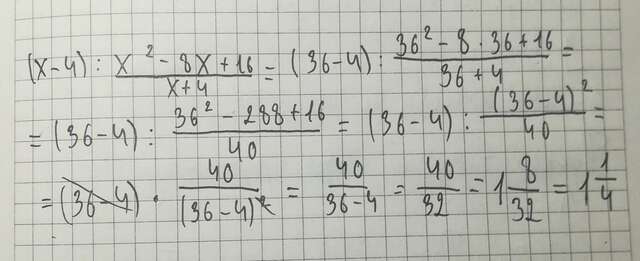 (x-4) : \frac{x^2 - 8x + 16}{x+4} = (36-4) : \frac{36^2 - 8 \cdot 36 + 16}{36+4} =
= (36-4) : \frac{36^2 - 288 + 16}{40} = (36-4) : \frac{(36-4)^2}{40} =
= (36-4) \cdot \frac{40}{(36-4)^2} = \frac{40}{36-4} = \frac{40}{32} = 1\frac{8}{32} = 1\frac{1}{4}